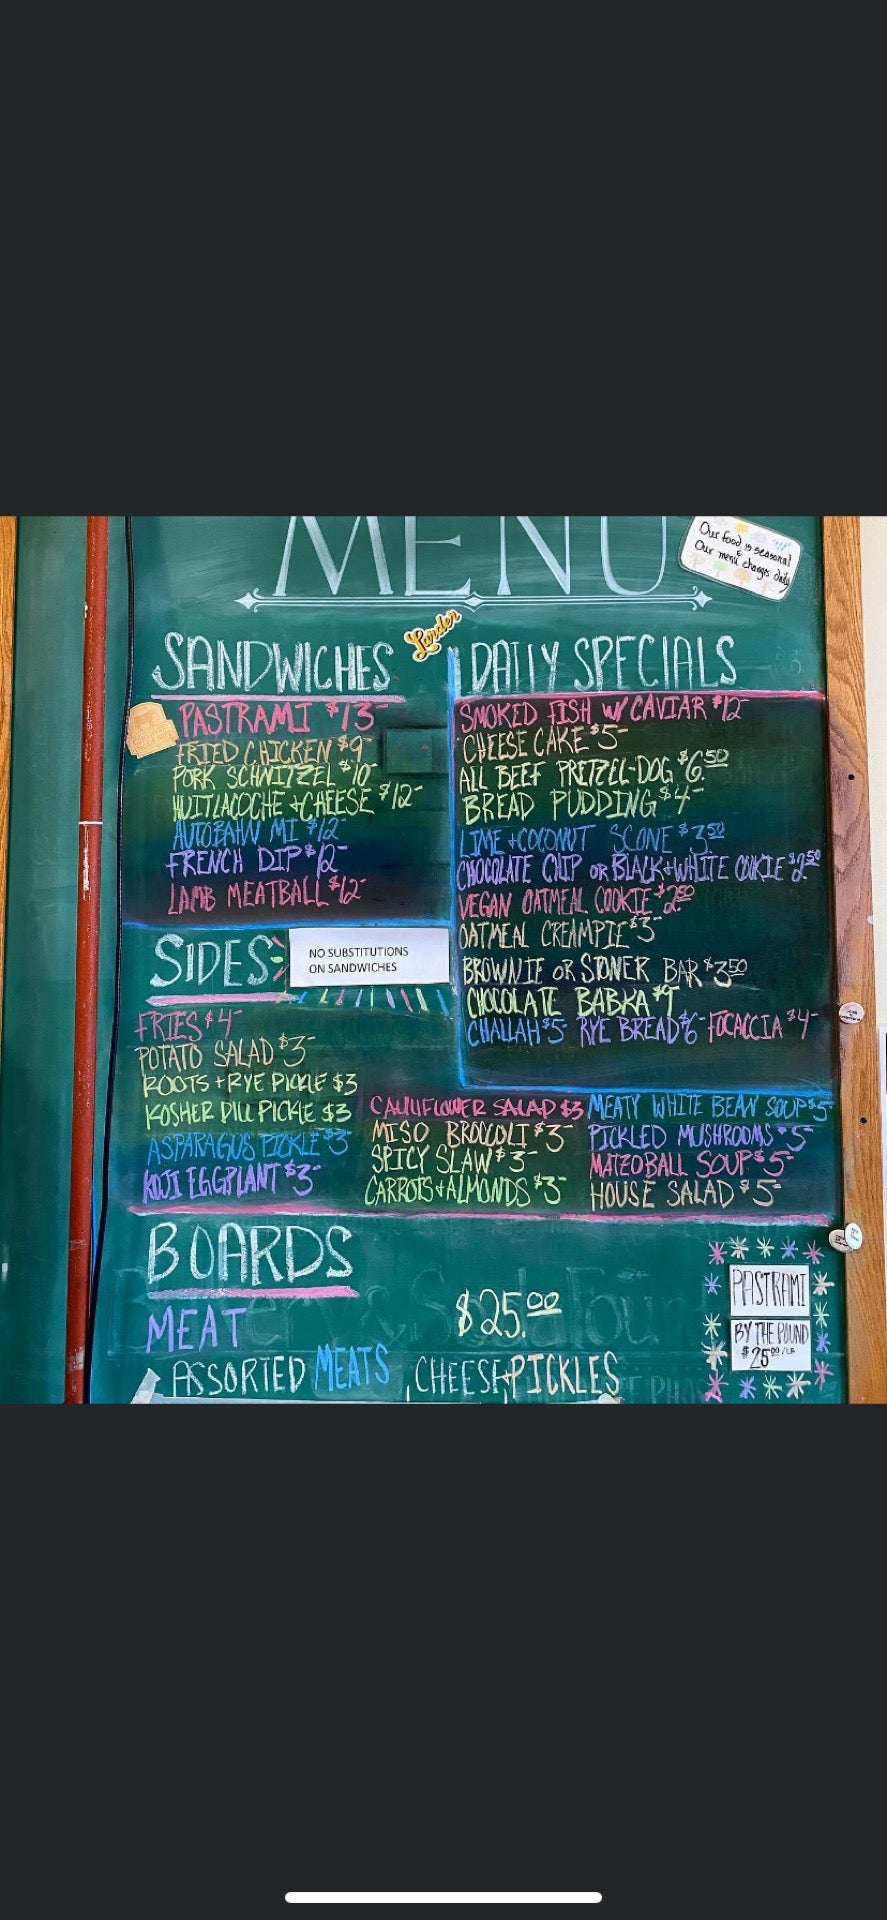 MENU
Our food is seasonal
&
Our menu changes daily
Larder
SANDWICHES
PASTRAMI $13-
FRIED CHICKEN $9-
PORK SCHNITZEL $10-
HUITLACOCHE + CHEESE $12-
AUTOBAHN MI $12-
FRENCH DIP $12-
LAMB MEATBALL $12-
DAILY SPECIALS
SMOKED FISH W/ CAVIAR $12-
CHEESE CAKE $5-
ALL BEEF PRETZEL-DOG $6.50
BREAD PUDDING $4-
LIME + COCONUT SCONE $3.50
CHOCOLATE CHIP OR BLACK + WHITE COOKIE $2.50
VEGAN OATMEAL COOKIE $2.50
OATMEAL CREAMPIE $3-
BROWNIE OR STONER BAR $3.50
CHOCOLATE BABKA
CHALLAH $5- RYE BREAD $6- FOCACCIA $4-
SIDES
NO SUBSTITUTIONS
ON SANDWICHES
FRIES $4-
POTATO SALAD $3-
ROOTS + RYE PICKLE $3
KOSHER DILL PICKLE $3
ASPARAGUS PICKLE $3
KOJI EGGPLANT $3-
CAULIFLOWER SALAD $3
MISO BROCCOLI $3-
SPICY SLAW $3-
CARROTS + ALMONDS $3-
MEATY WHITE BEAN SOUP $5
PICKLED MUSHROOMS $5-
MATZOBALL SOUP $5-
HOUSE SALAD $5-
BOARDS
MEAT $25.00
ASSORTED MEATS, CHEESE + PICKLES
PASTRAMI
BY THE POUND
$25.00/LB